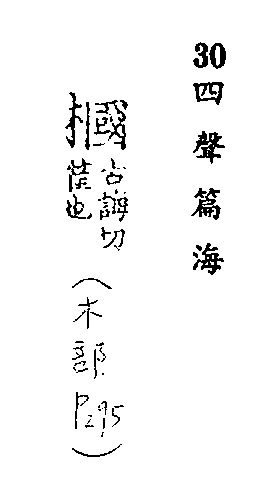 30四聲篇海
槶
古誨切
筐也
(木部P295)